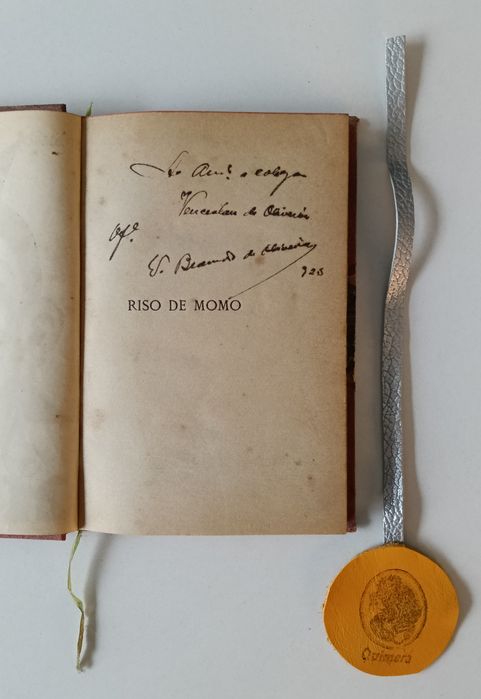 Ao Am.º e colega
Venceslau de Oliveira
Of.e
V. Brandão de Oliveira
925
RISO DE MOMO
Quimera